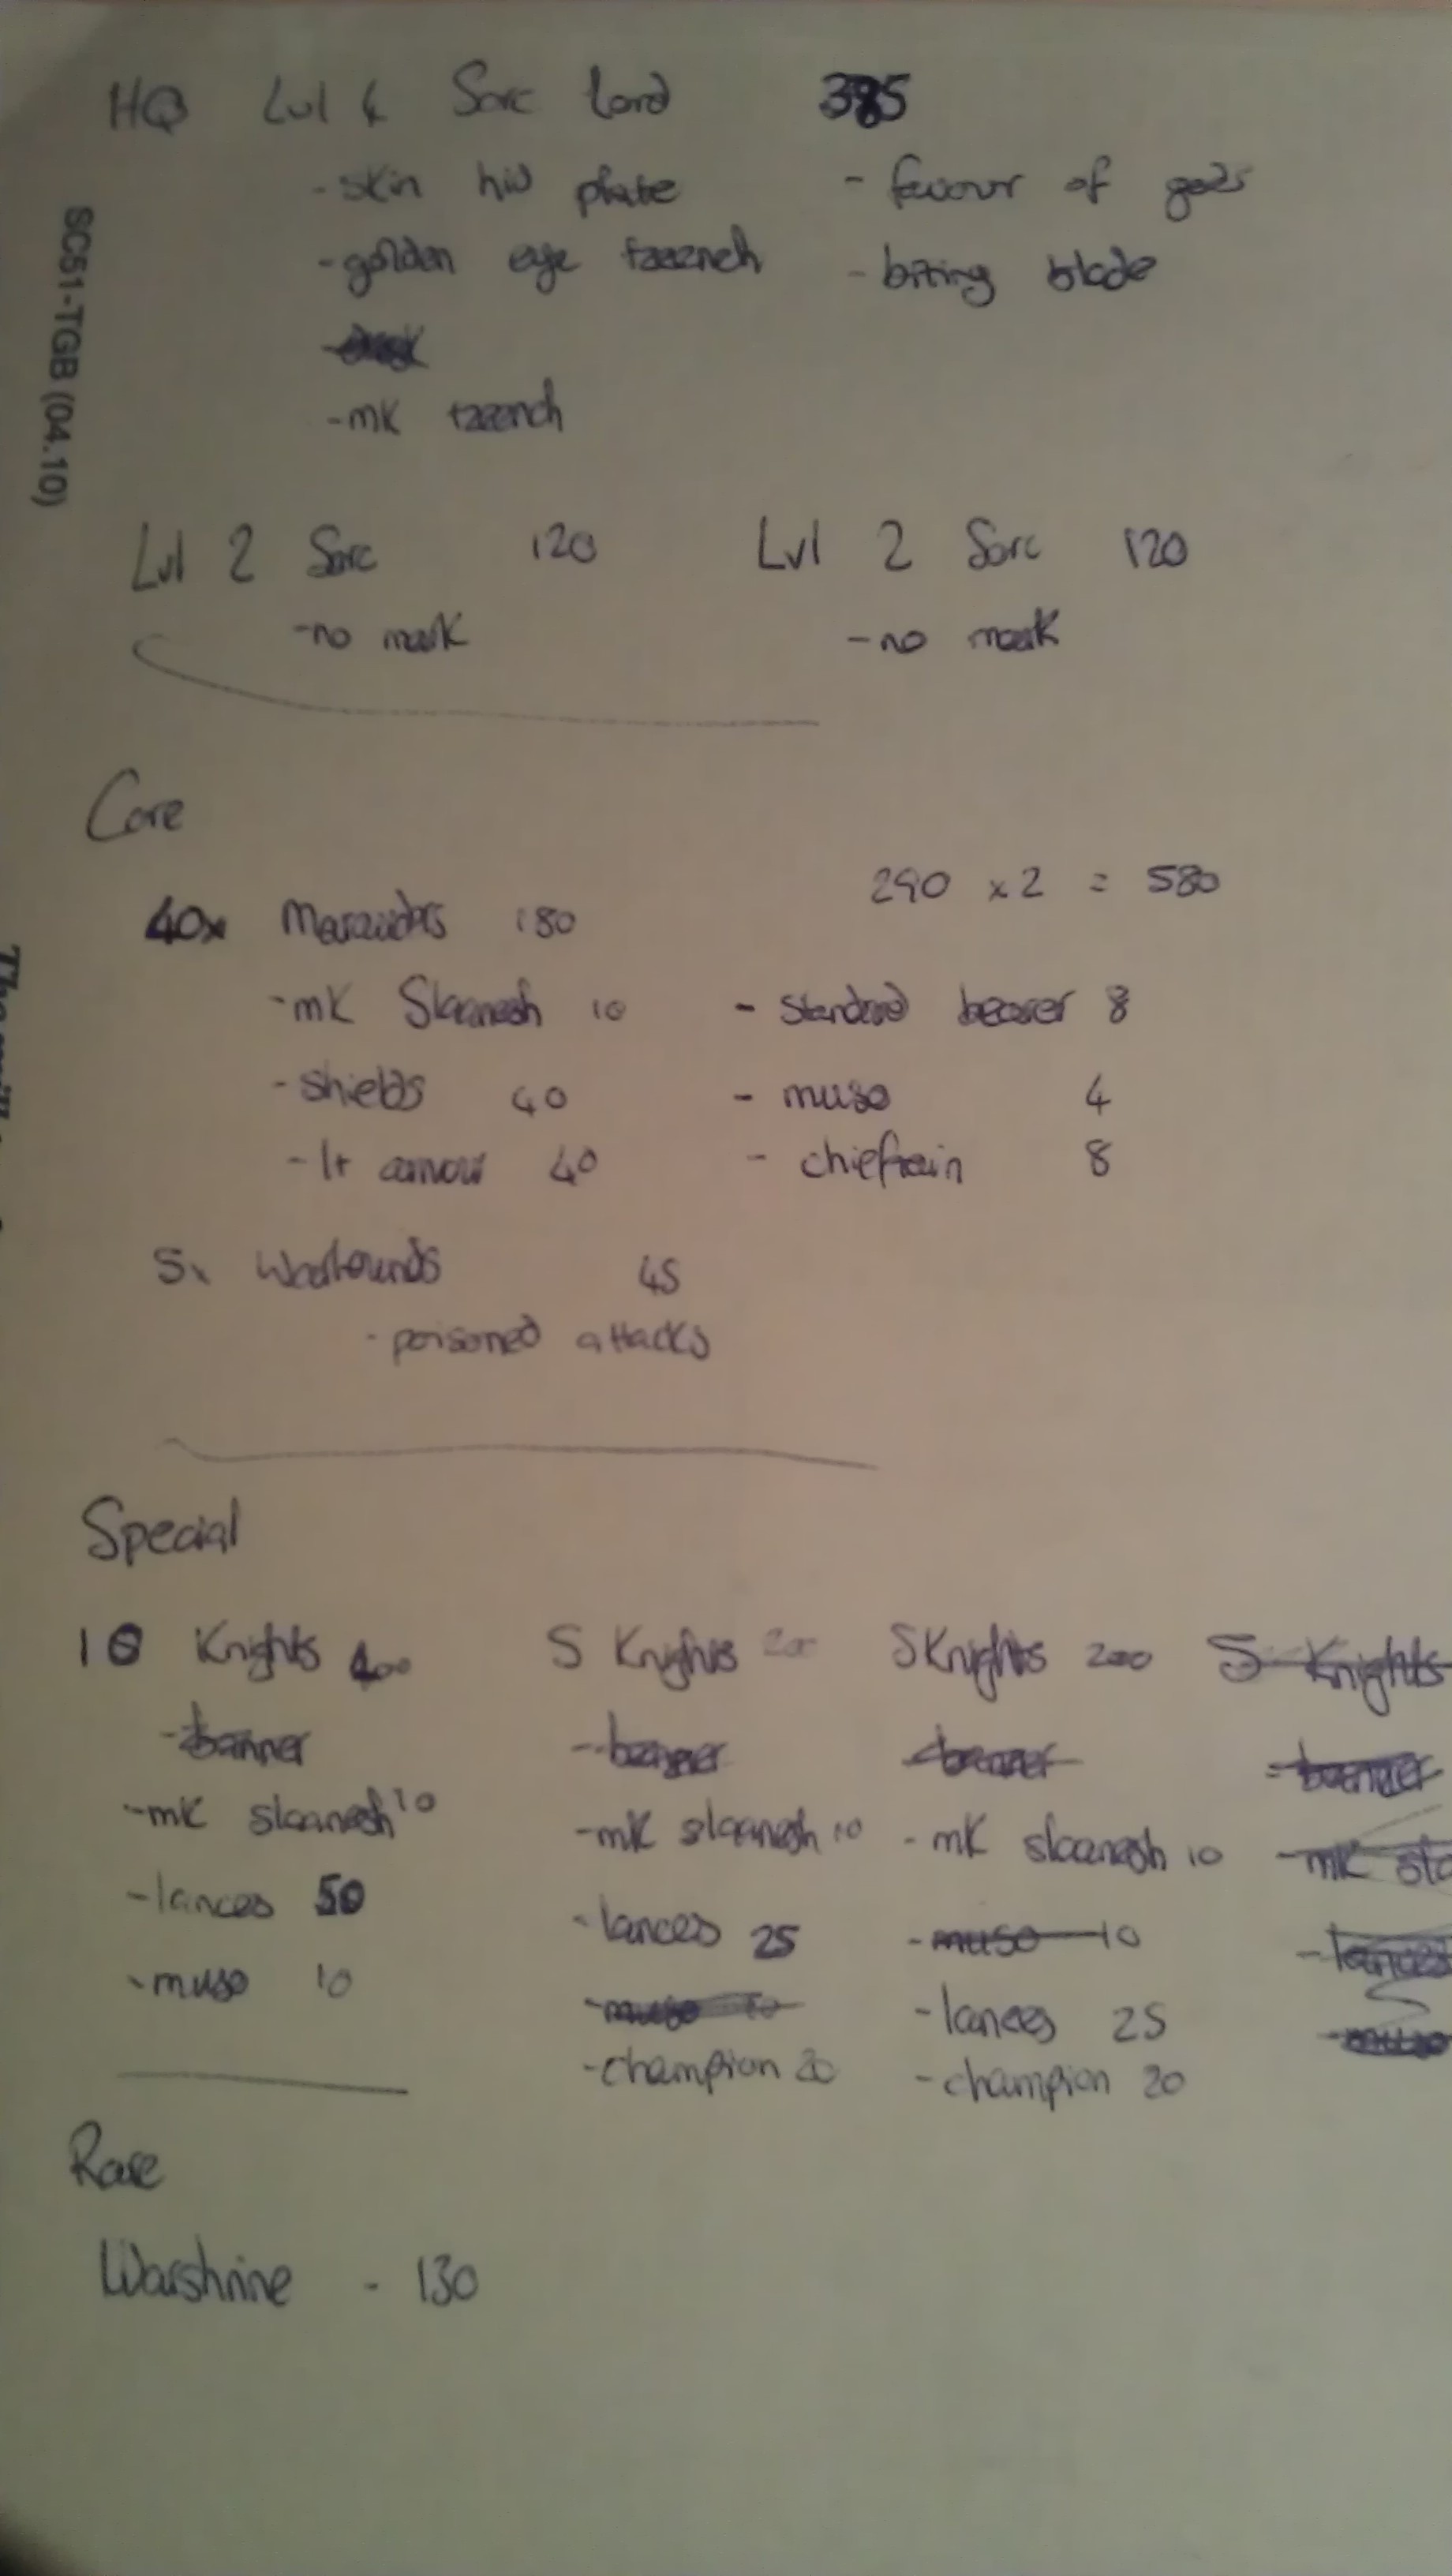 HQ Lvl 4 Sorc Lord 385
- skin hid plate - favour of gods
- golden eye tzzench - biting blade
- mk tzzench
SC51-TGB (04.10)
Lvl 2 Sorc 120 Lvl 2 Sorc 120
- no mark - no mark
Core
290 x 2 = 580
40x Marauders 180
- mk Slaanesh 10 - standard bearer 8
- shields 40 - muso 4
- lt armour 40 - chieftain 8
5x Warhounds 45
- poisoned attacks
Special
10 Knights 400 5 Knights 200 5 Knights 200 5 Knights
- banner - banner - banner - banner
- mk slaanesh 10 - mk slaanesh 10 - mk slaanesh 10 - mk sla
- lances 50 - lances 25 - muso 10 - lances
- muso 10 - muso 10 - lances 25 - muso
- champion 20 - champion 20
Rare
Warshrine - 130